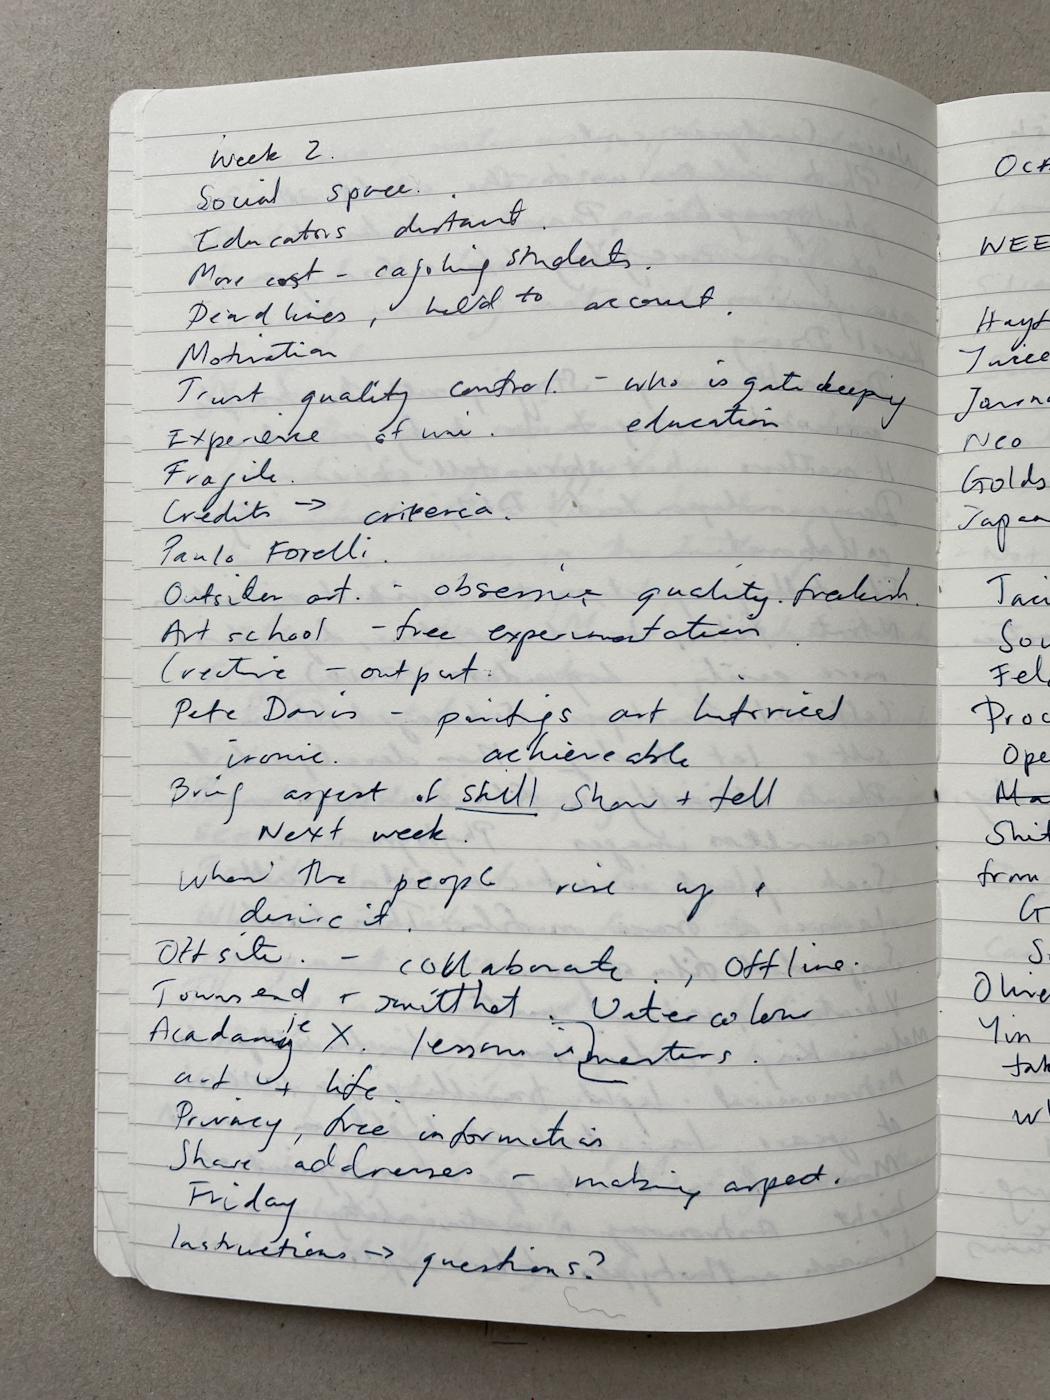 Week 2.
Social space.
Educators distant.
More cost - cajoling students.
Deadlines, held to account.
Motivation
Trust quality control. - who is gatekeeping
Experience of uni. education
Fragile.
Credits → criteria.
Paulo Forelli.
Outsider art. - obsessive quality. freakish.
Art school - free experimentation
Creative - output.
Pete Davis - paintings art historical
ironic. achieveable
Bring aspect of skill Show + tell
Next week.
When the people rise up +
desire it.
Offsite. - collaborate., Offline.
Townsend + Watercolour
Academy X. lessons in masters.
art + life.
Privacy, free information
Share addresses - making aspect.
Friday
Instructions → questions?
OCT
WEE
Hayt
Twice
Journa
Neo
Golds
Japan
Taci
Sou
Fel
Proc
Ope
Ma
Shit
from
G
S
Olive
Yin
tak
wh